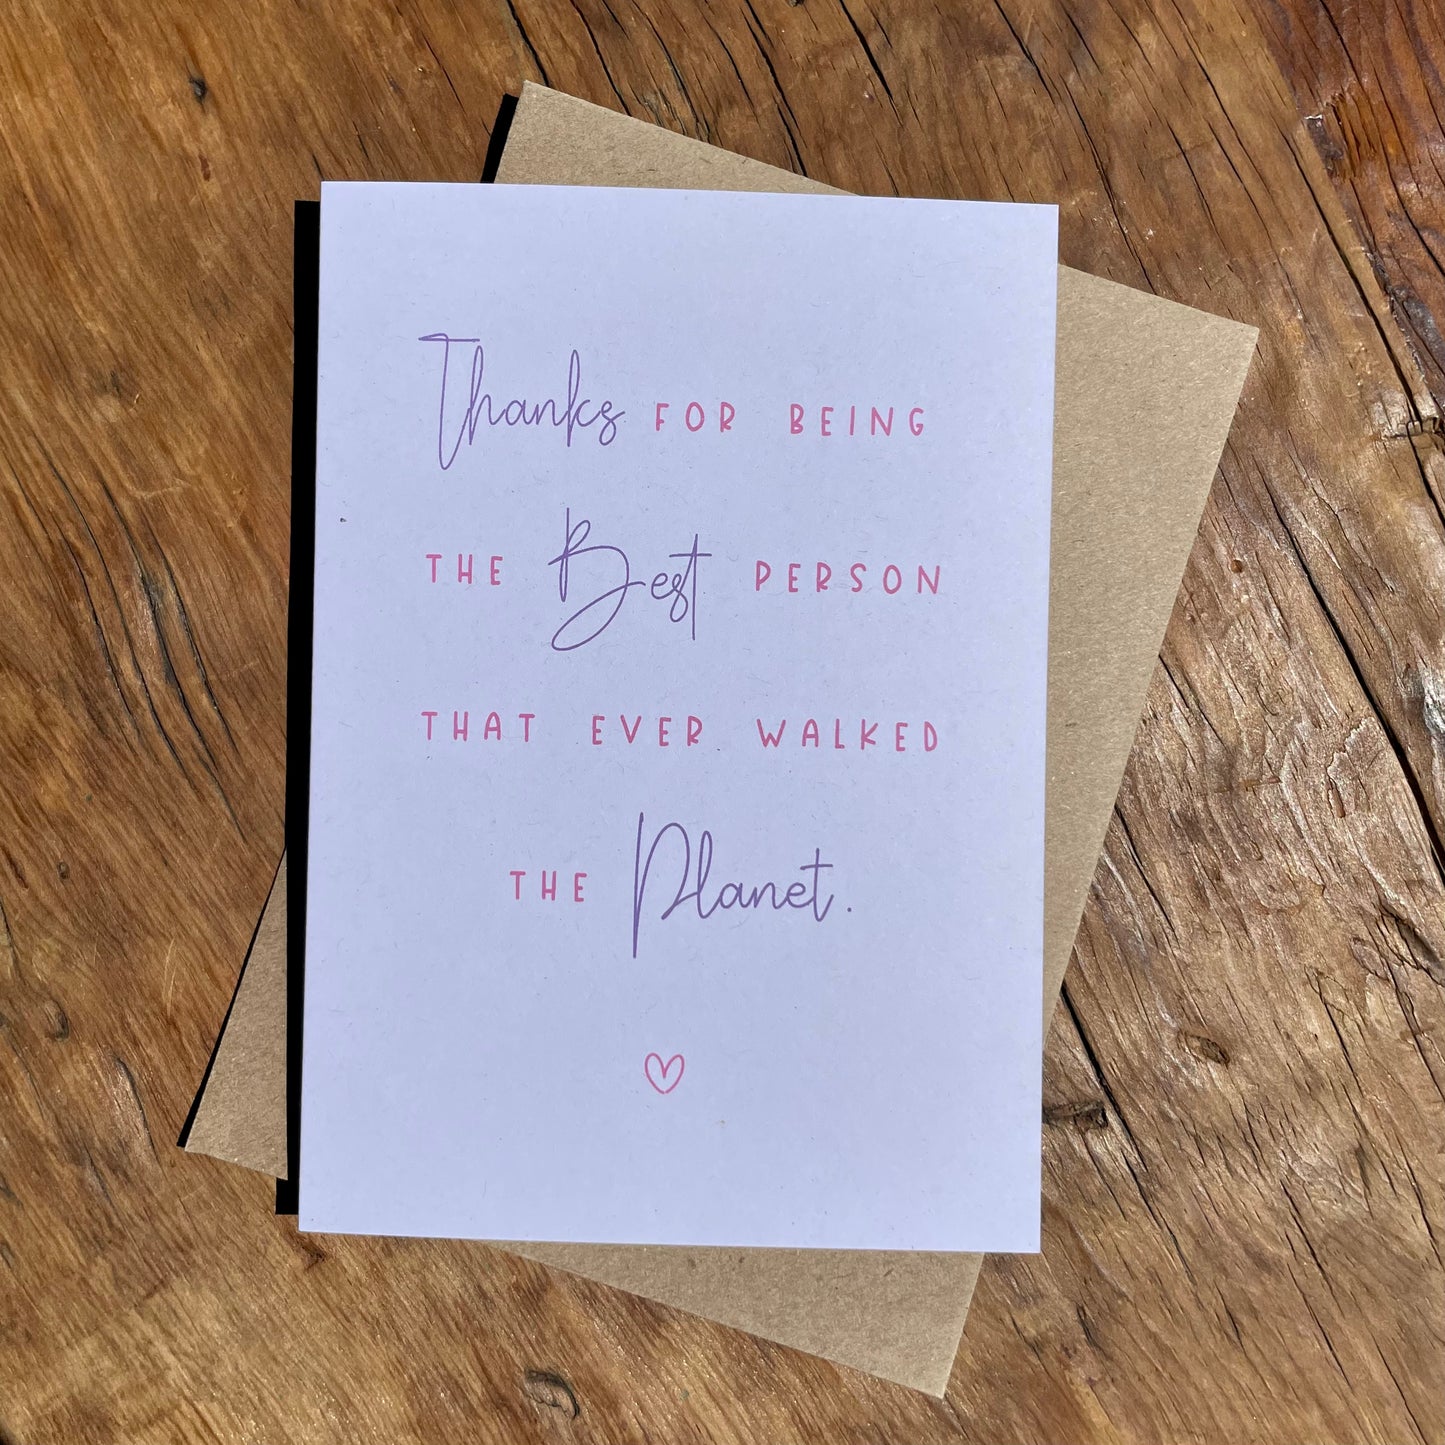 Thanks FOR BEING
THE Best PERSON
THAT EVER WALKED
THE Planet.